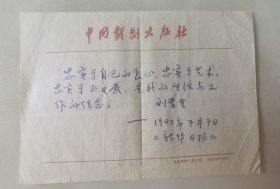 中国戏剧出版社
忠实于自己的良心，忠实于艺术，
忠实于正义感，是我的生活与工
作的信念。
刘雪
——1942年7月7日
《新华日报》